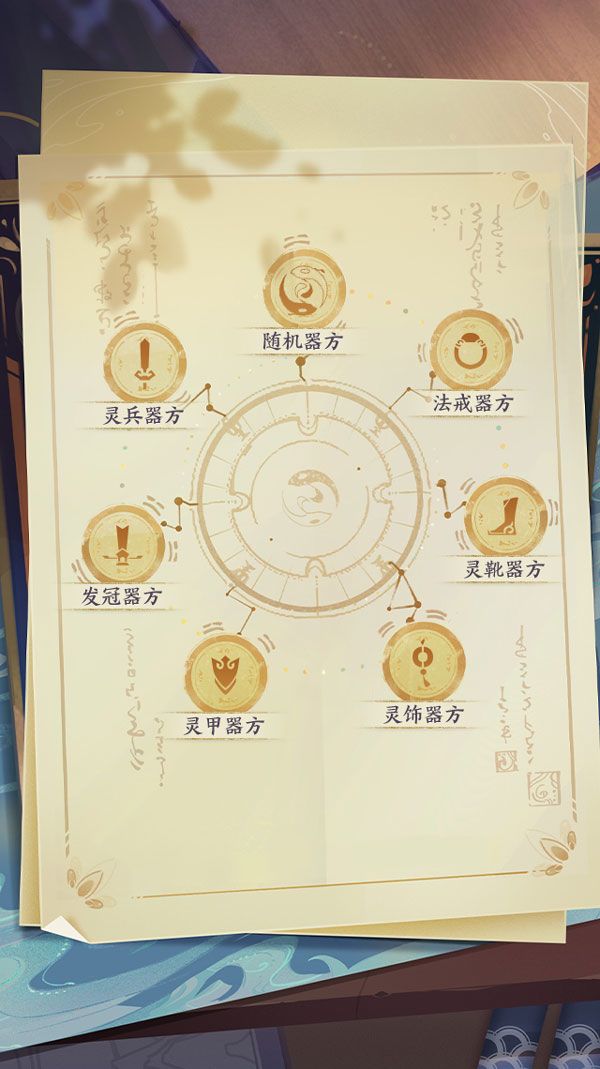 随机器方
灵兵器方
法戒器方
发冠器方
灵靴器方
灵甲器方
灵饰器方